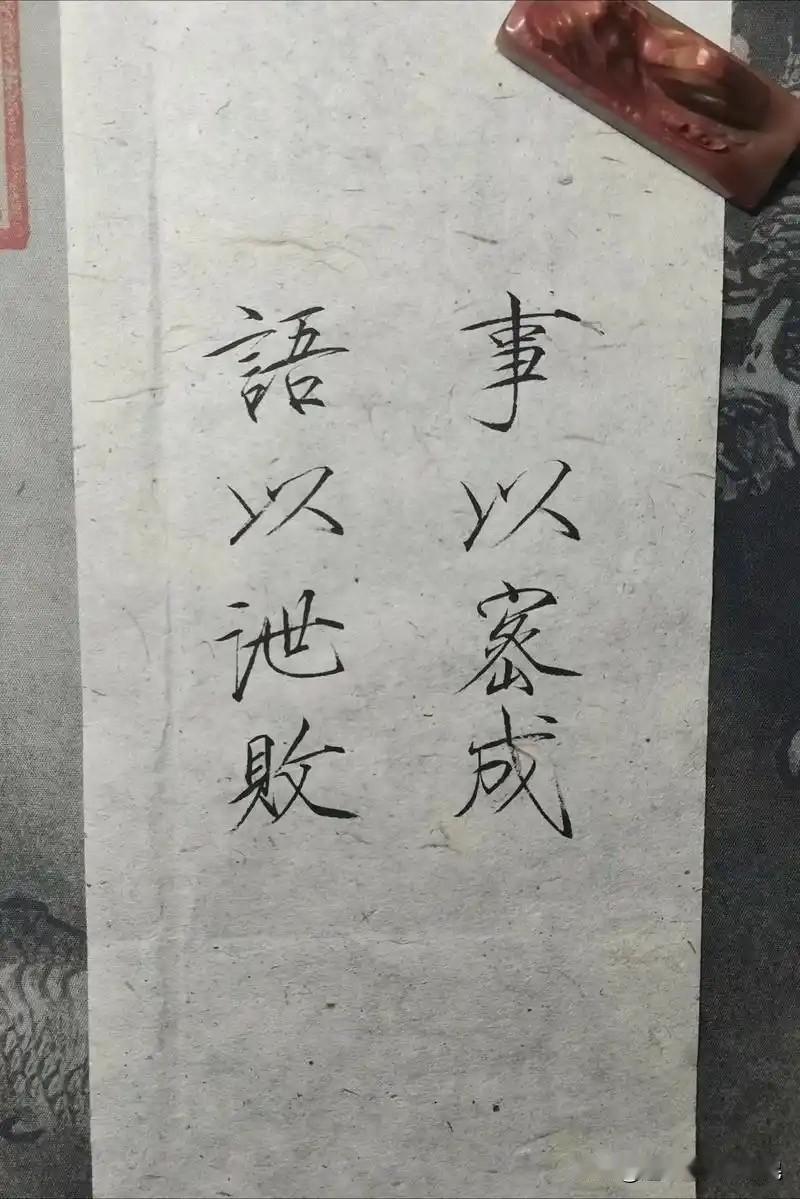 事以密成
語以泄敗